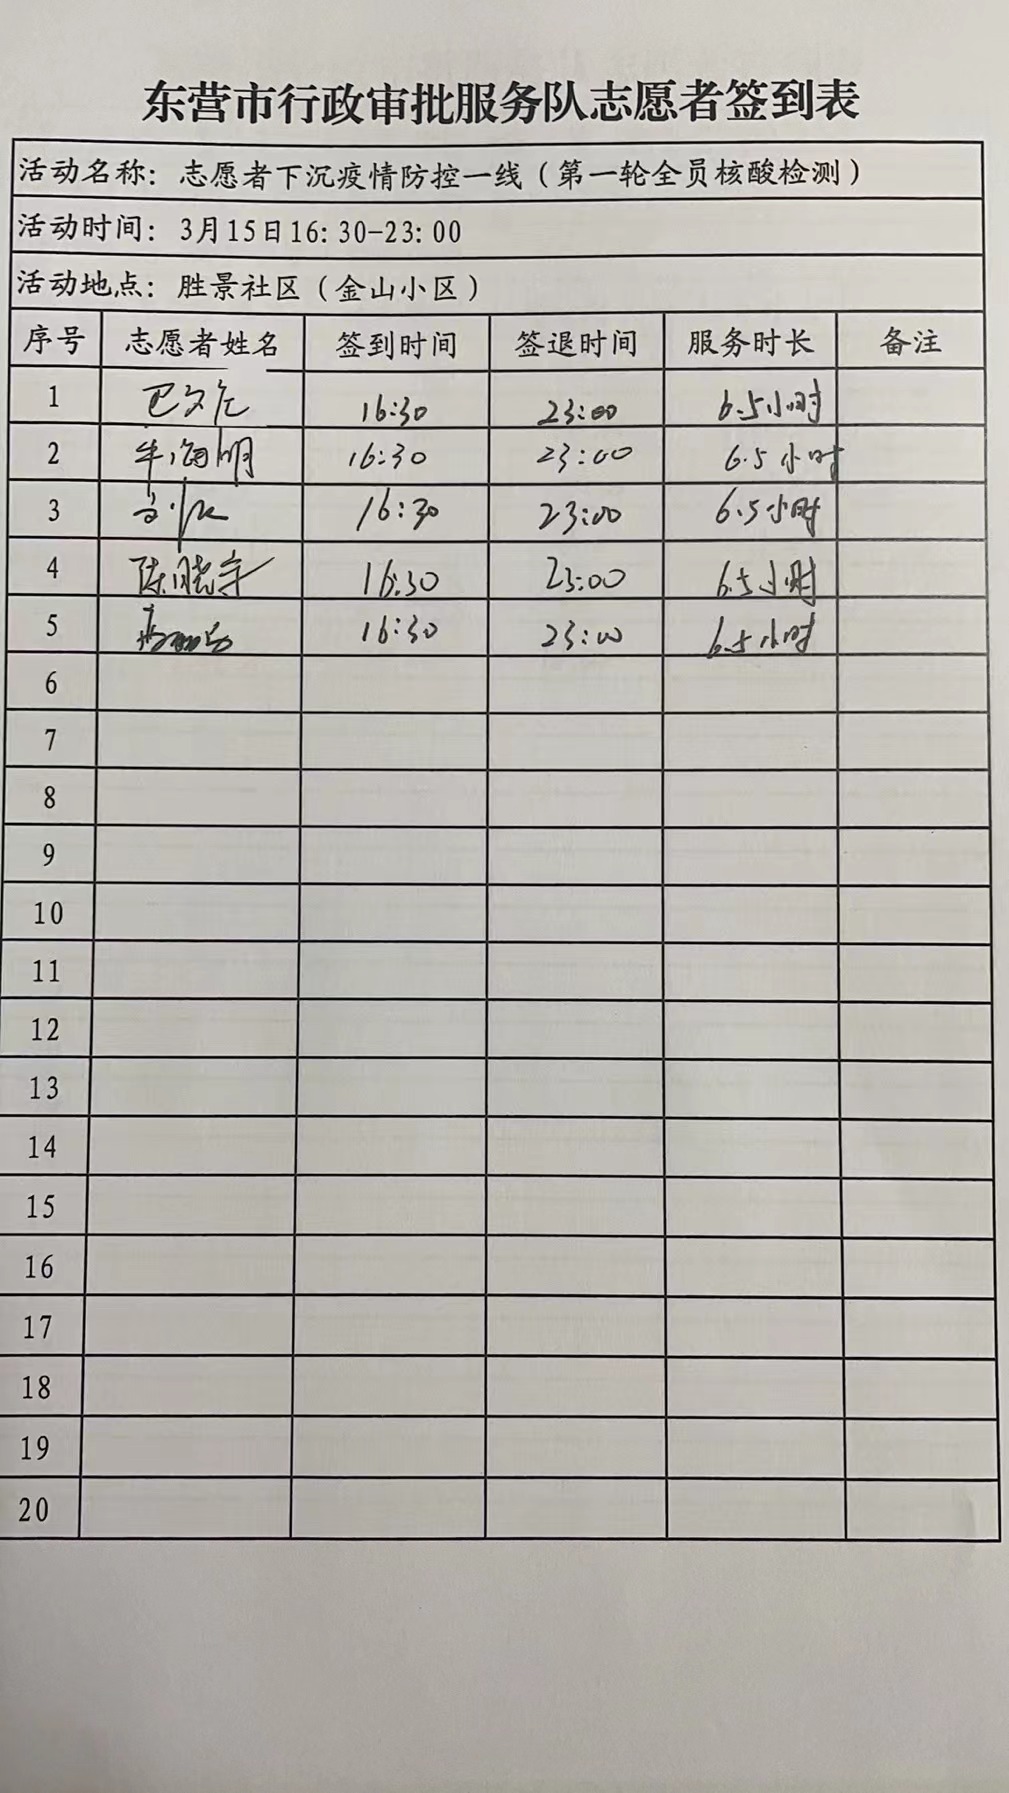 东营市行政审批服务队志愿者签到表
活动名称：志愿者下沉疫情防控一线（第一轮全员核酸检测）
活动时间：3月15日16：30-23：00
活动地点：胜景社区（金山小区）
序号 志愿者姓名 签到时间 签退时间 服务时长 备注
1 16:30 23:00 6.5小时
2 牟海明 16:30 23:00 6.5小时
3 16:30 23:00 6.5小时
4 陈晓宇 16:30 23:00 6.5小时
5 16:30 23:00 6.5小时
6
7
8
9
10
11
12
13
14
15
16
17
18
19
20